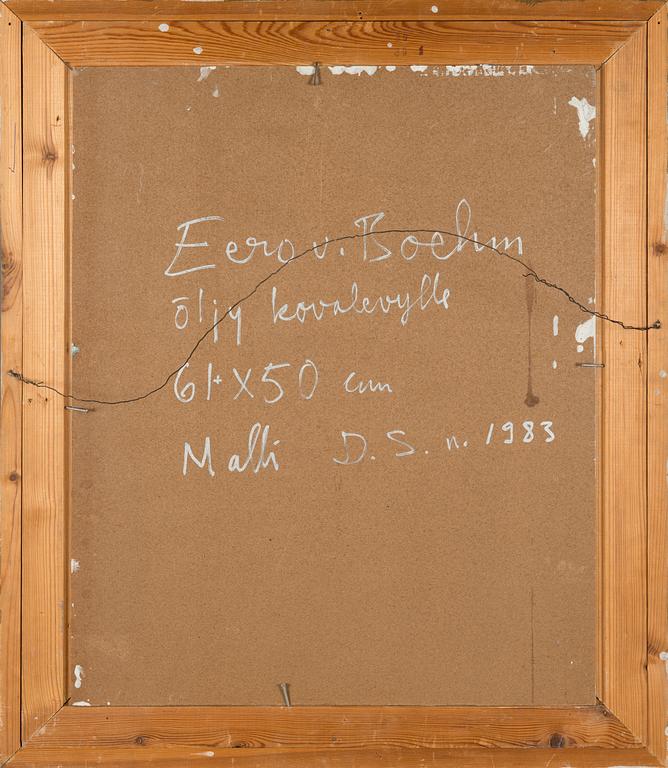 Eero v. Boehm
öljy kovalevylle
61 x 50 cm
Malli D. S. n. 1983